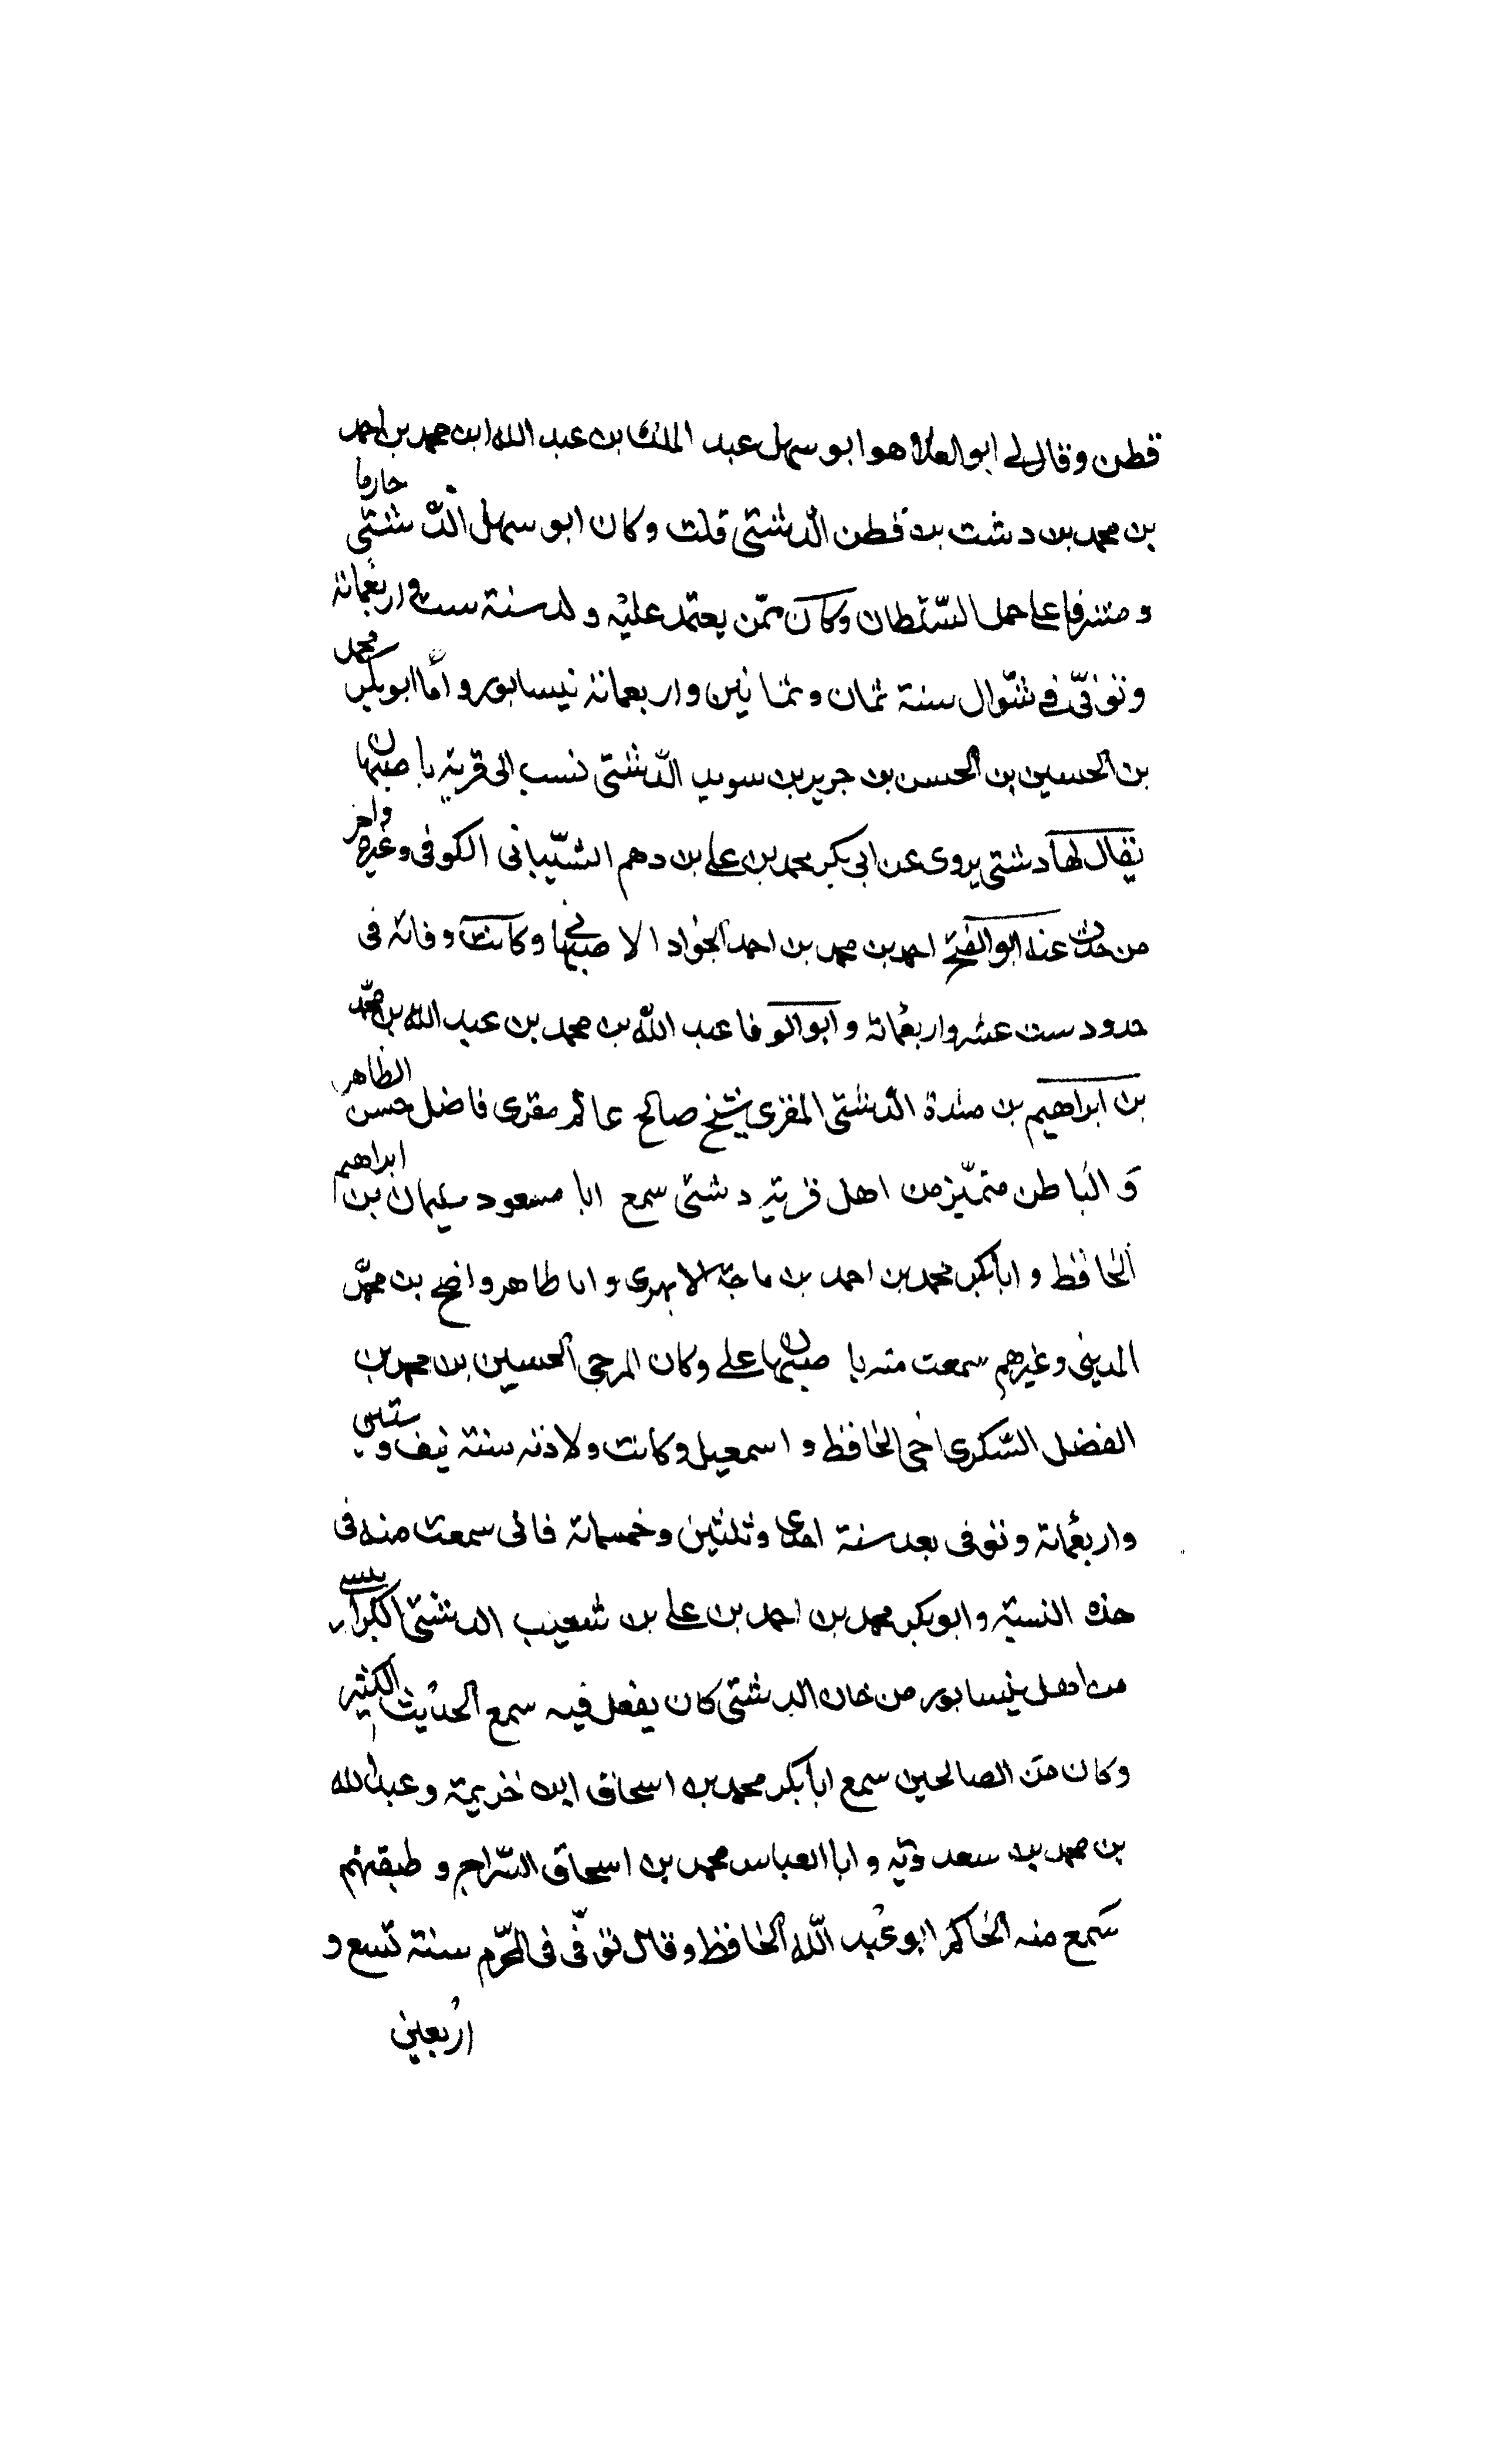 قطن وقال لي ابو العلا هو ابو سهل عبد الملك بن عبد الله ابن محمد بن احمد
بن محمد بن دشت بن قطن الدشتى قلت وكان ابو سهل الدشتي حازما
و متنرفا على حمل السلطان وكان ممّن يعتمد عليه ولد سنة ست واربعمائة
وتوفّى في شوّال سنة ثمان وثمانين واربعمائة نيسابور وأمّا ابو بكر محمد
بن الحسين بن الحسن بن جرير بن سويد الدشتى نسب الى قرية باصبهان
يقال لها دشتى يروى عن ابى بكر محمد بن على بن دهم الشّيبانى الكوفى وغيره واخر
من حدّث عنه ابو الفتح احمد بن محمد بن احمد الحواد الاصبهاني وكانت وفاته فى
حدود ست عشر واربعمائة وابو الوفا عبد اللّه بن محمد بن عبد الله بن محمّد
بن ابراهيم بن مندة الدشتى المقرى شيخ صالح عالم مقرى فاضل حسن الظاهر
وَ الباطن متميّز من اهل قرية دشتى سمع ابا مسعود سليمان بن ابراهيم
الحافظ و ابا بكر محمد بن احمد بن ماجة الابهرى و ابا طاهر واضح بن محمّد
المدينى وغيرهم سمعت منه باصبهان على وكان المرجى الحسين بن محمد بن
الفضل السّكرى اخى الحافظ و اسمعيل وكانت ولادته سنة نيف وستين
واربعمائة وتوفى بعد سنة احدى وثلثين وخمسمائة فانى سمعت منه فى
هذه النسبة وابو بكر محمد بن احمد بن على بن شعيب الدشتى الكرابيسي
من اهل نيسابور من خان الدشتى كان يفعل فيه سمع الحديث الكثير
وكان من الصالحين سمع ابا بكر محمد بن اسحاق ابن خزيمة وعبد الله
بن محمد بن سعدويه و ابا العباس محمد بن اسحاق السّراج و طبقتهم
سَمع منه الحاكم ابو عبد اللّه الحافظ وقال توفّى فى المحرّم سنة تسع و
اربعين